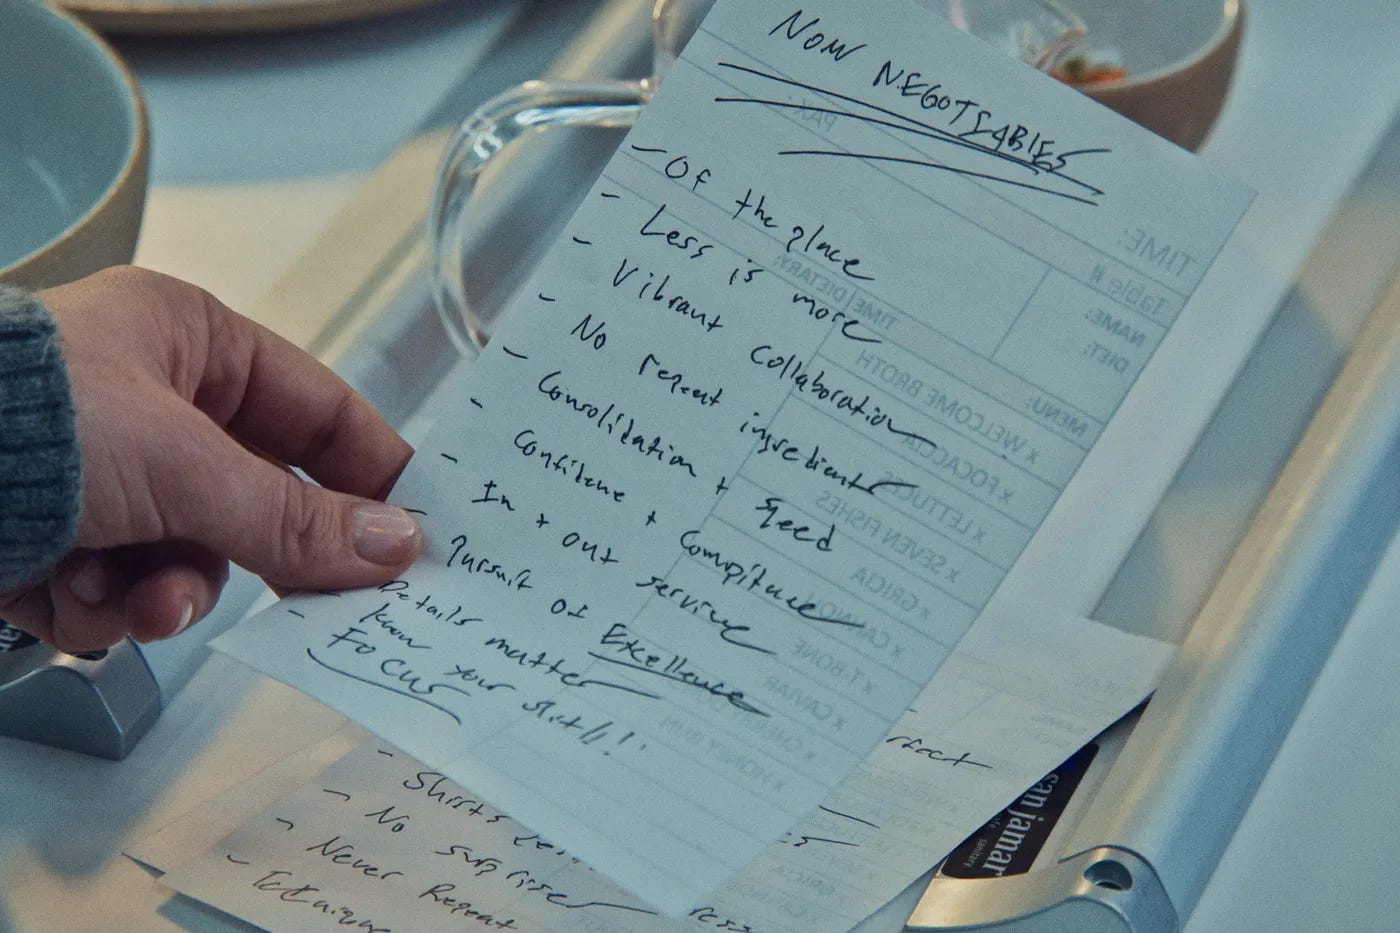 NON NEGOTIABLES
- Of the place
- Less is more
- Vibrant Collaboration
- No repeat ingredients
- Consolidation + speed
- Confidence + Competence
- In + out service
- Pursuit of Excellence
- Details matter
- know your shit!!!
- FOCUS
PAX
TIME:
Table #
NAME:
DIET:
TIME|DIETARY:
MENU:
x WELCOME BROTH
x FOCACCIA
x LETTUCE
x SEVEN FISHES
x GRICIA
x T-BONE
x CAVIAR
x HONEY BUN
rfect
- Shirts
- No surprises
- Never Repeat
san jamar
sanitary